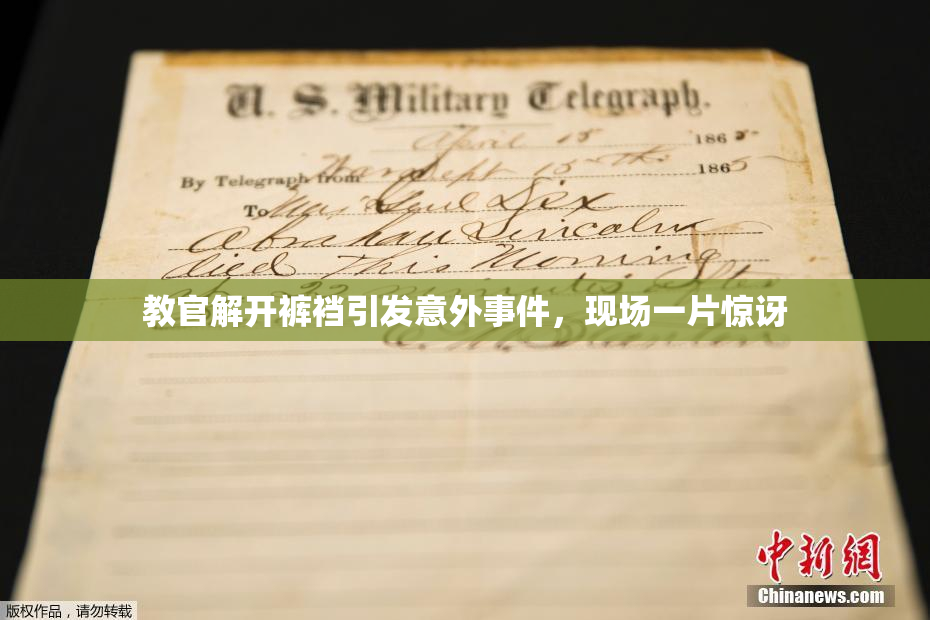 U. S. Military Telegraph.
April 15 1865
By Telegraph from War Dept 15th 1865
To Maj Genl Dix
Abraham Lincoln
died This Morning
at 22 minutes after
教官解开裤裆引发意外事件，现场一片惊讶
E. M. Stanton
中新网
Chinanews.com
版权作品，请勿转载